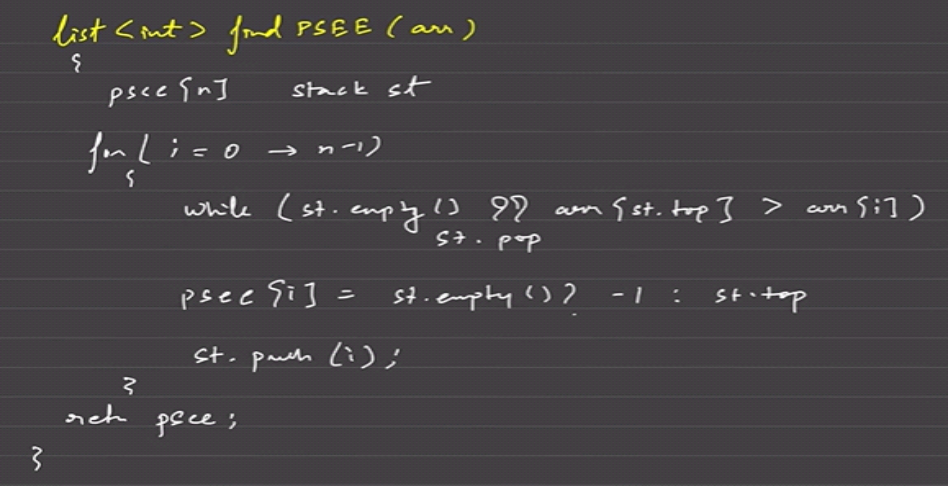 list<int> find PSEE (arr)
{
psee[n] stack st
for( i = 0 → n-1)
{
while (st.empty() && arr[st.top] > arr[i])
st.pop
psee[i] = st.empty()? -1 : st.top
st.push(i);
}
retn psee;
}